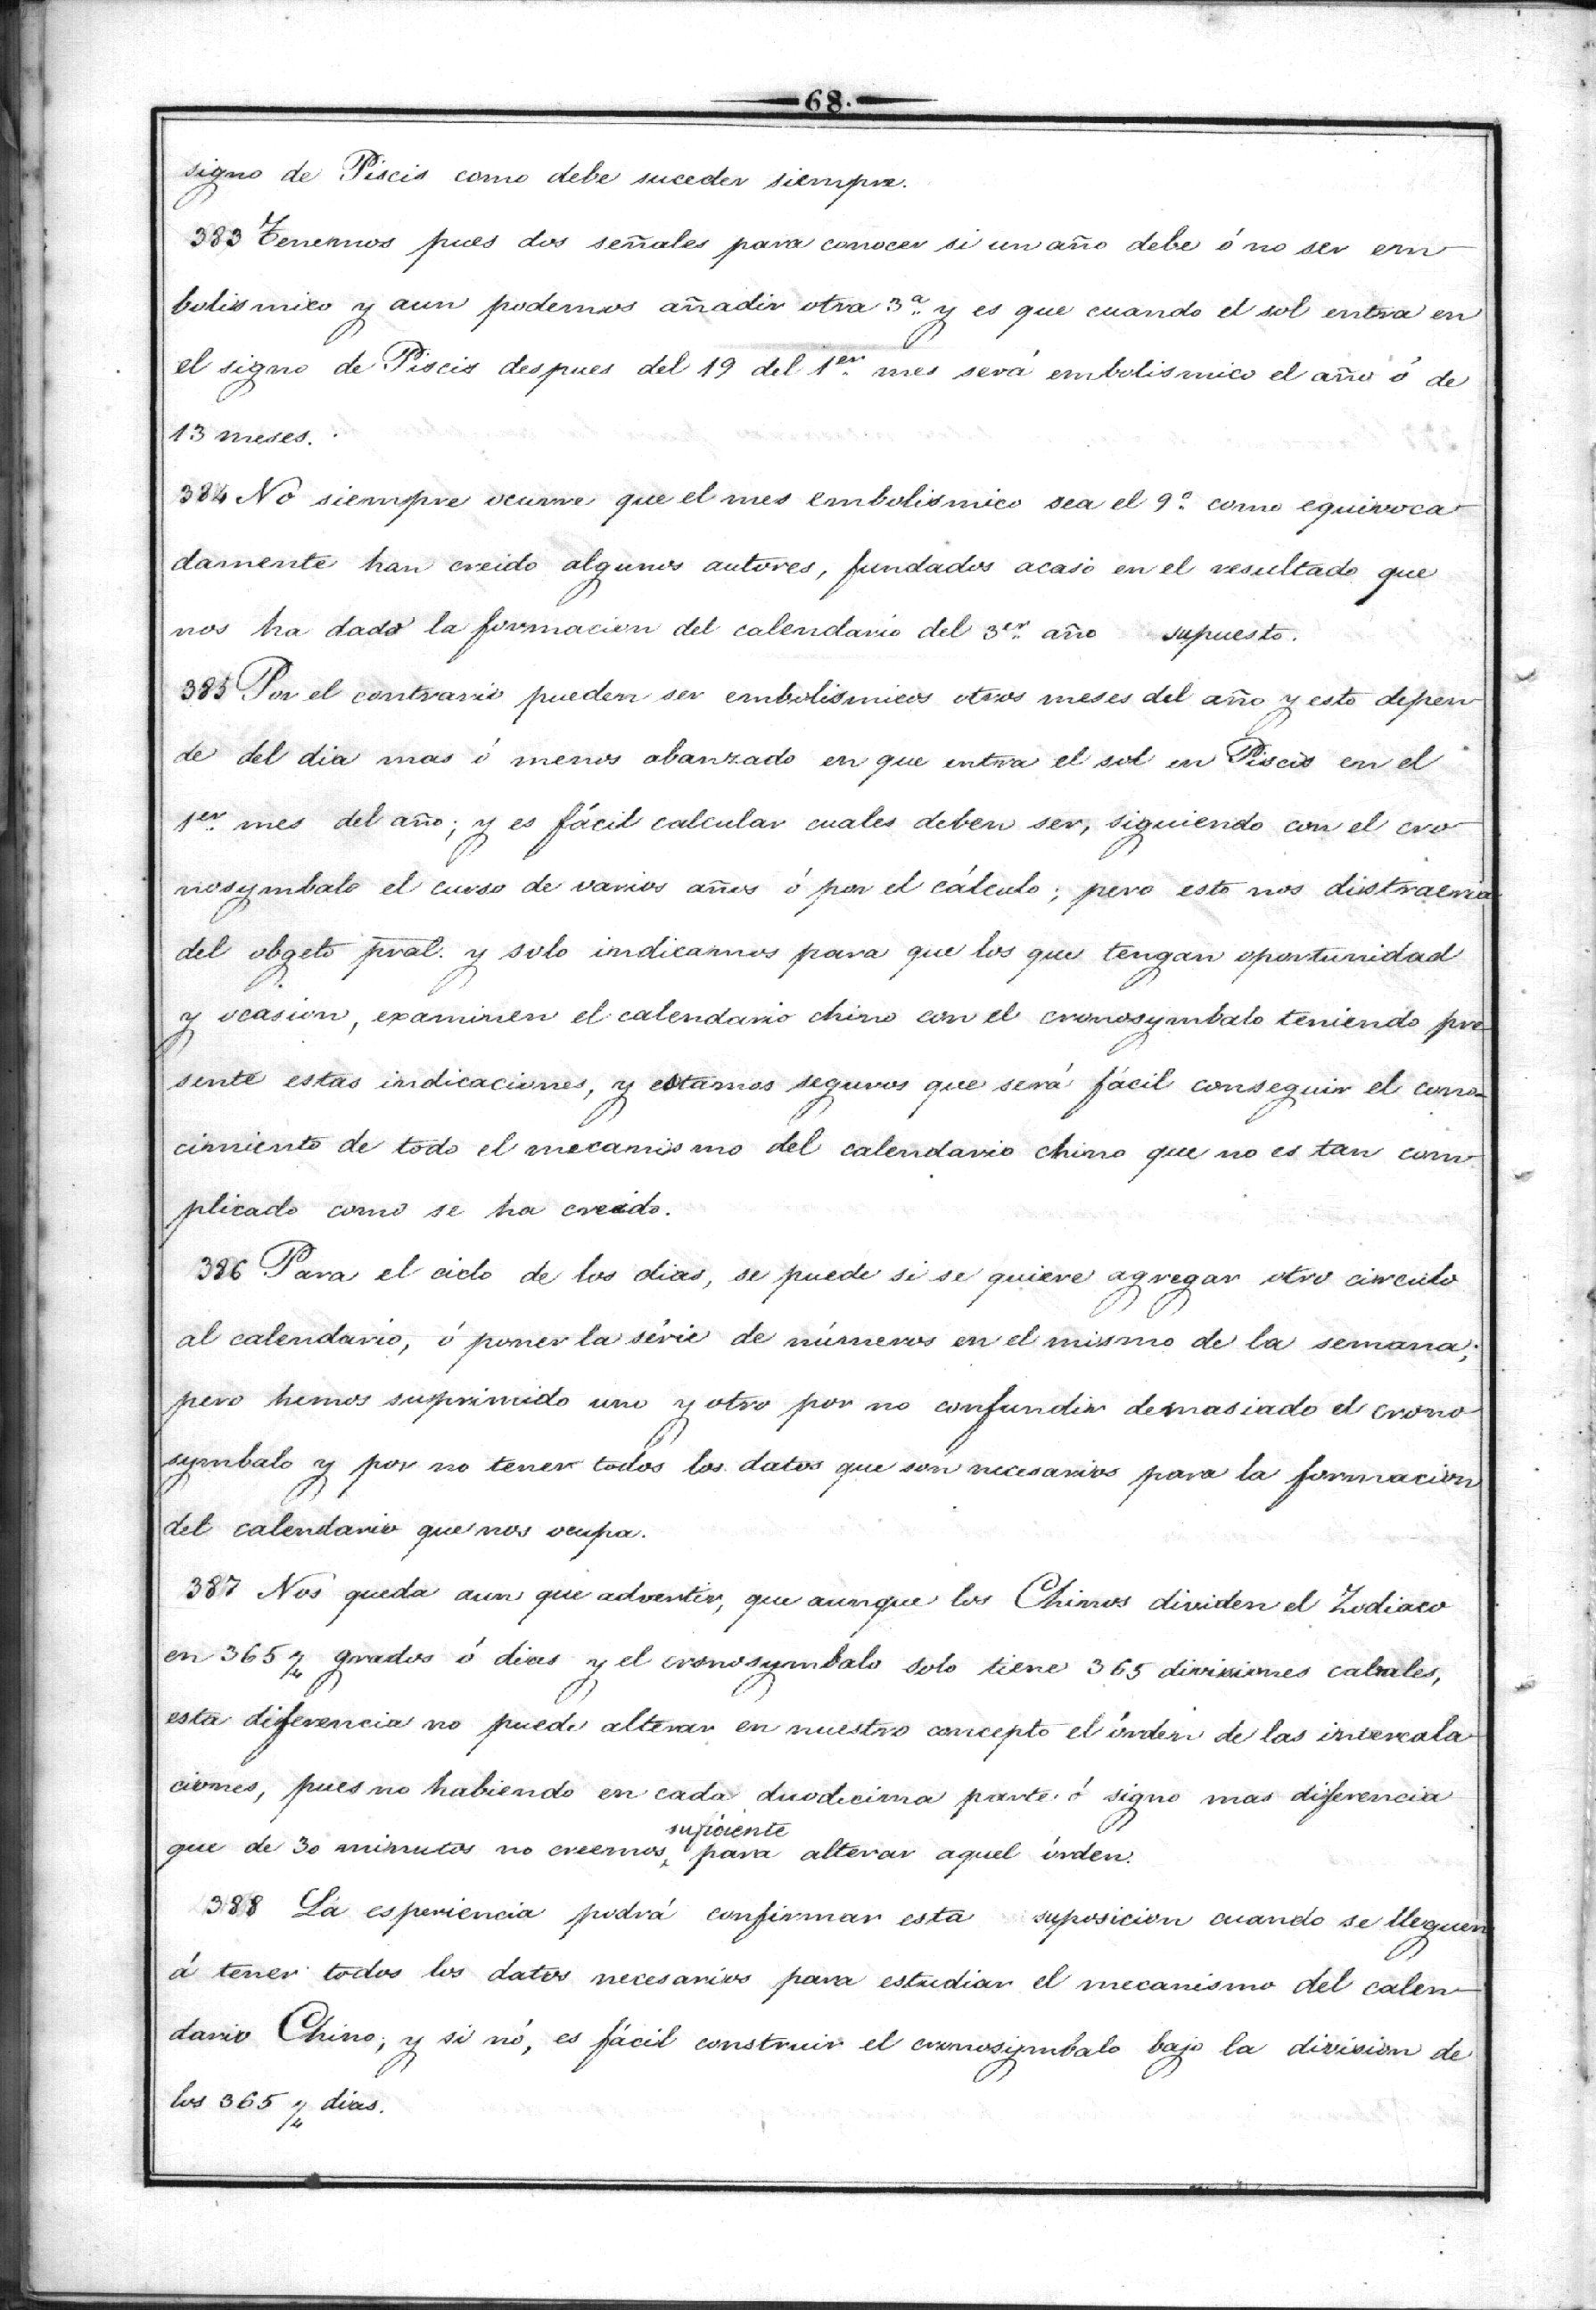 68.
signo de Piscis como debe suceder siempre.
383 Tenemos pues dos señales para conocer si un año debe ó no ser em
bolismico y aun podemos añadir otra 3.ª y es que cuando el sol entra en
el signo de Piscis despues del 19 del 1.er mes será embolismico el año ó de
13 meses.
384 No siempre ocurre que el mes embolismico sea el 9.º como equivoca
damente han creido algunos autores, fundados acaso en el resultado que
nos ha dado la formacion del calendario del 3.er año supuesto.
385 Por el contrario pueden ser embolismicos otros meses del año y esto depen
de del dia mas ó menos abanzado en que entra el sol en Piscis en el
1.er mes del año; y es fácil calcular cuales deben ser, siguiendo con el cro
nosymbalo el curso de varios años ó por el cálculo; pero esto nos distraeria
del obgeto pral. y solo indicamos para que los que tengan oportunidad
y ocasion, examinen el calendario chino con el cronosymbalo teniendo pre
sente estas indicaciones, y estamos seguros que será fácil conseguir el cono-
cimiento de todo el mecanismo del calendario chino que no es tan com
plicado como se ha creido.
386 Para el ciclo de los dias, se puede si se quiere agregar otro circulo
al calendario, ó poner la série de números en el mismo de la semana;
pero hemos suprimido uno y otro por no confundir demasiado el crono
symbalo y por no tener todos los datos que son necesarios para la formacion
del calendario que nos ocupa.
387 Nos queda aun que advertir, que aunque los Chinos dividen el Zodiaco
en 365 1/4 grados ó dias y el cronosymbalo solo tiene 365 divisiones cabales,
esta diferencia no puede alterar en nuestro concepto el órden de las intercala
ciones, pues no habiendo en cada duodecima parte ó signo mas diferencia
suficiente
que de 30 minutos no creemos, para alterar aquel órden.
388 La esperiencia podrá confirmar esta suposicion cuando se lleguen
á tener todos los datos necesarios para estudiar el mecanismo del calen
dario Chino; y si nó, es fácil construir el cronosymbalo bajo la division de
los 365 1/4 dias.